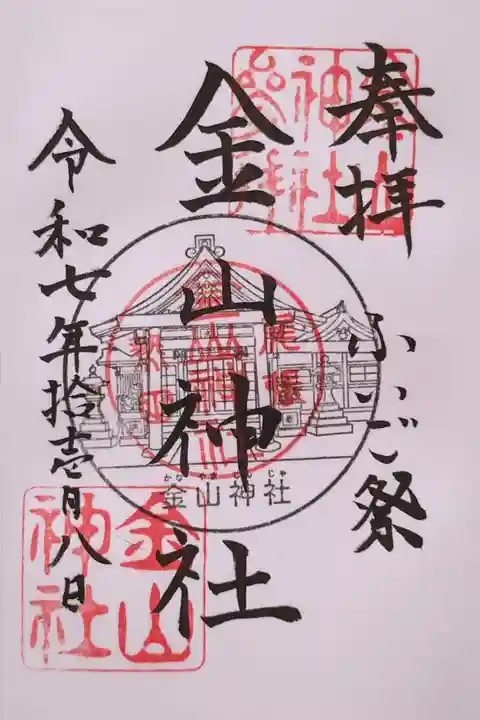 奉拝
ふいご祭
金山神社
令和七年拾壱月八日
かなやまじんじゃ
金山神社
金山
神社